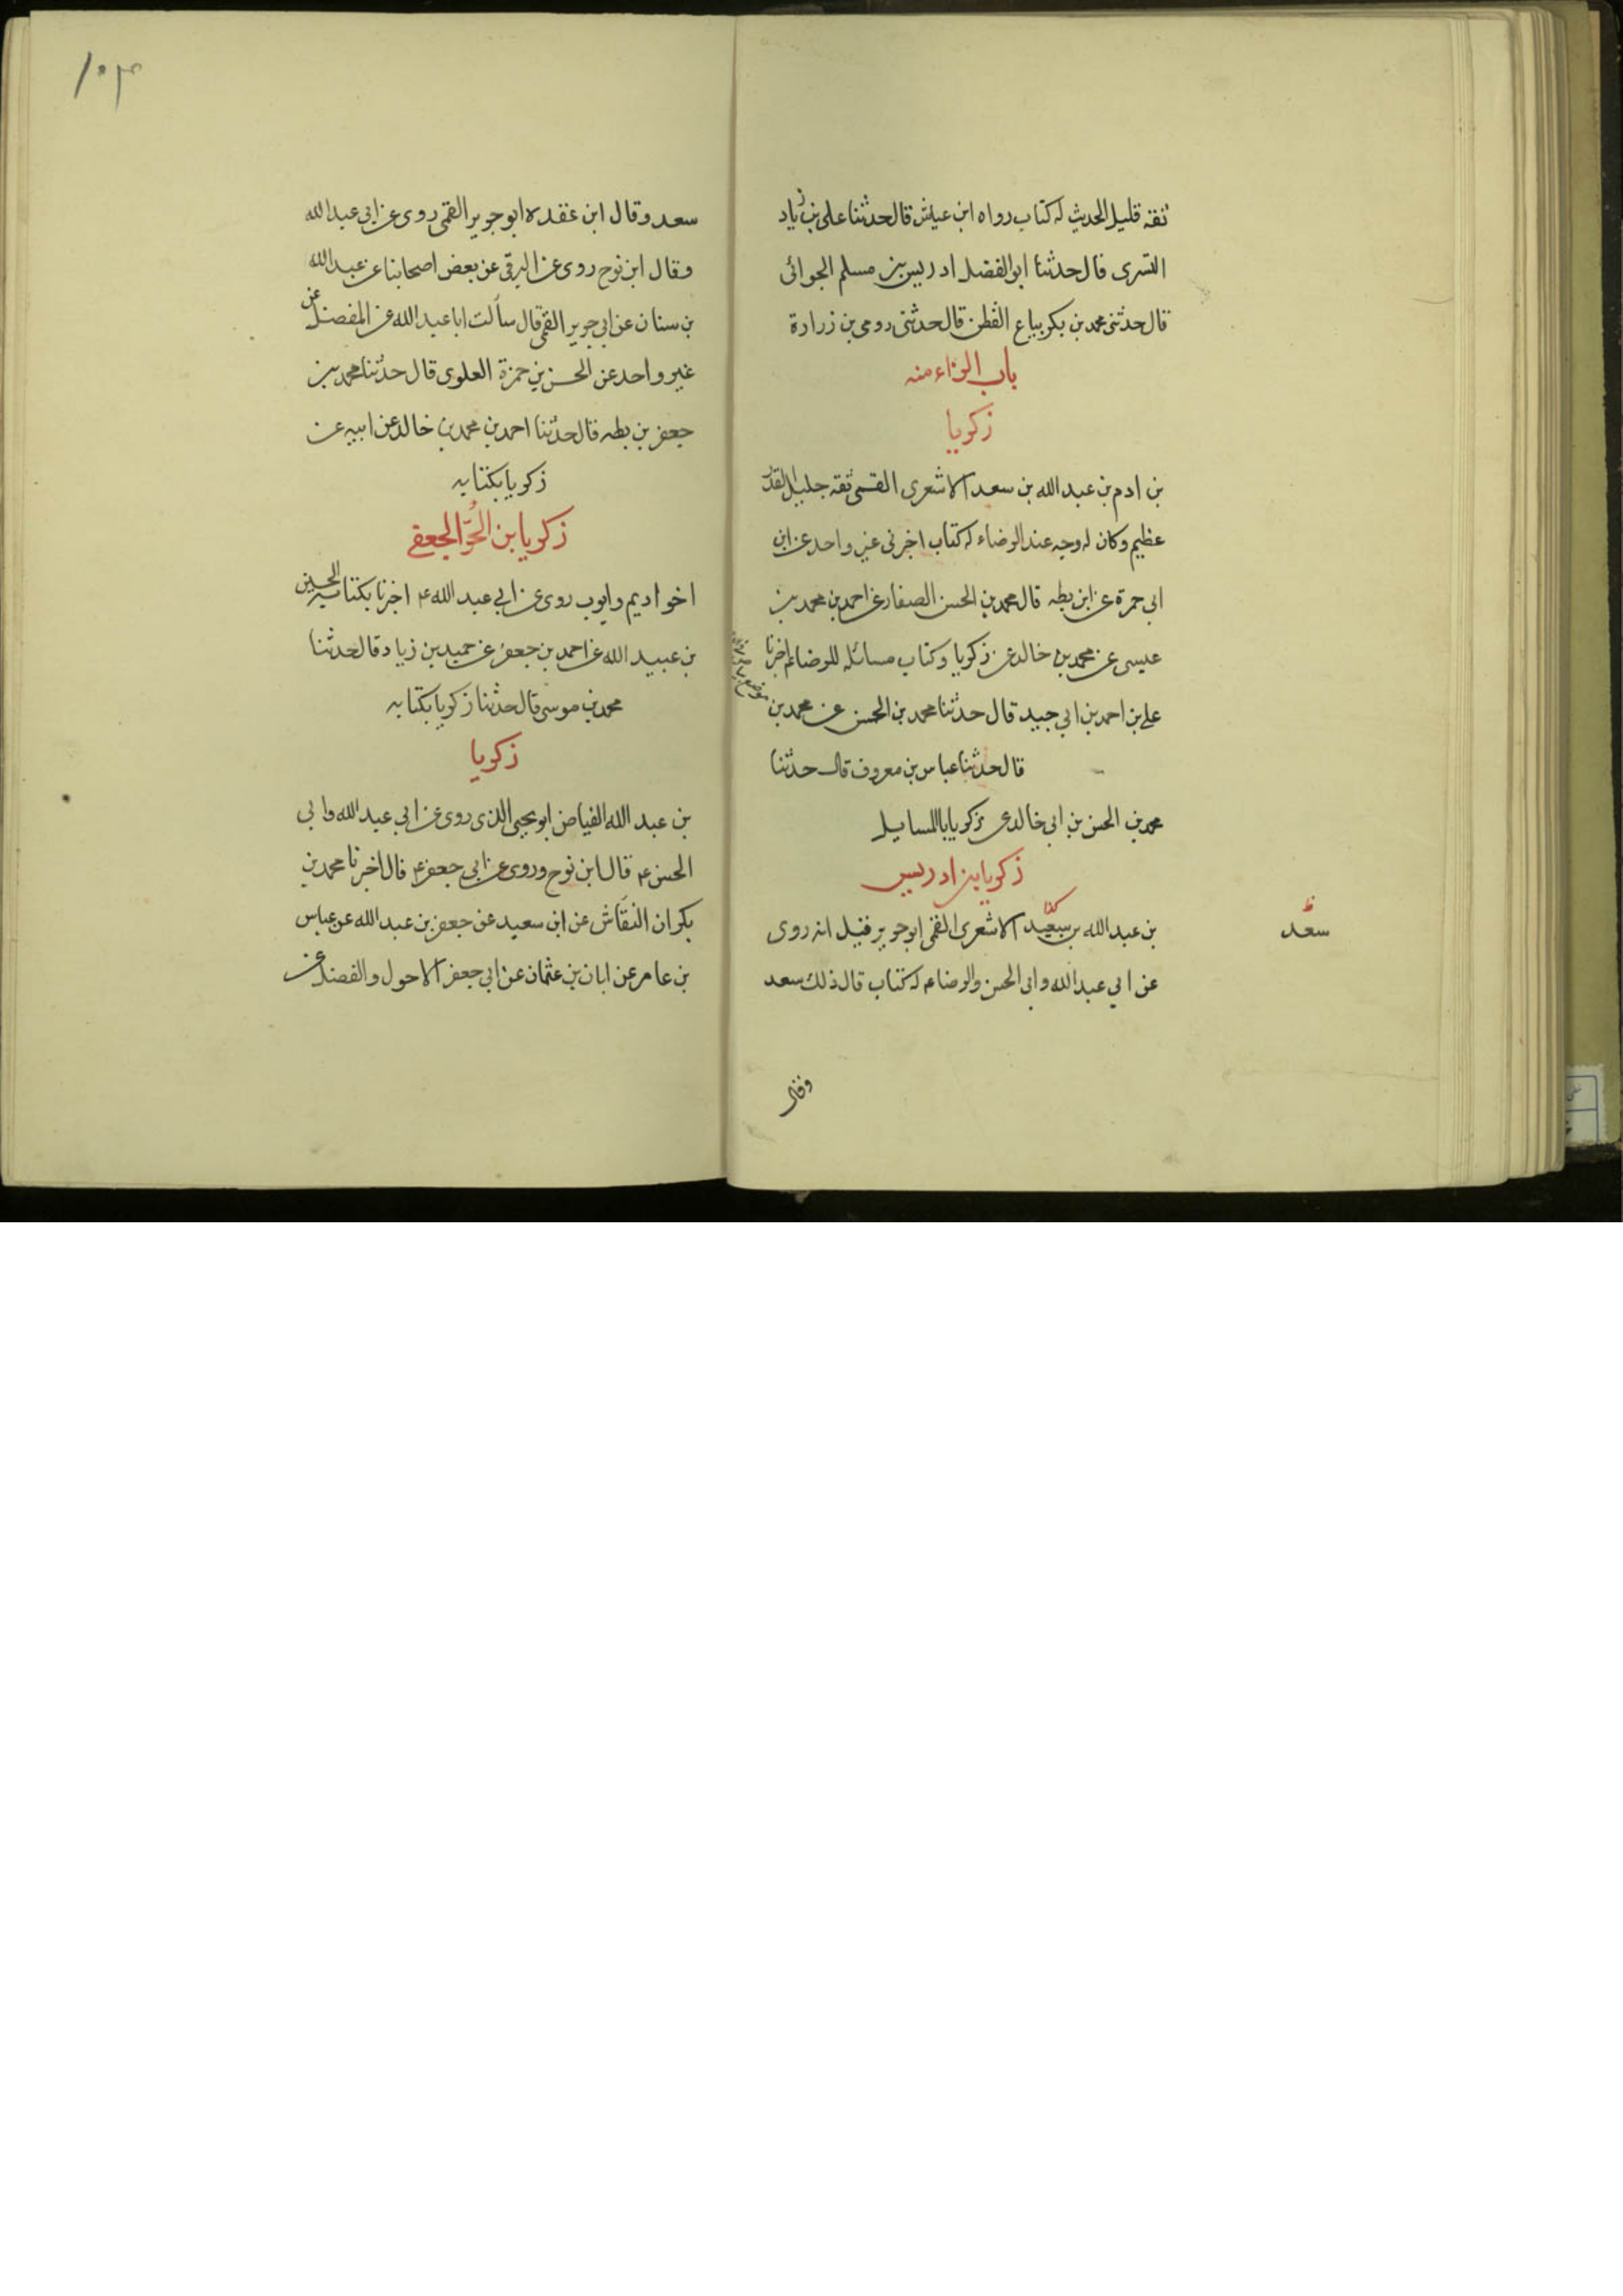 ثقة قليل الحديث له كتاب رواه ابن عياش قال حدثنا على بن زياد
التسرى قال حدثنا ابو الفضل ادريس بن مسلم الجوانى
قال حدثنى محمد بن بكر بياع القطن قال حدثنى رومى بن زرارة
باب الزاء منه
زكريا
بن ادم بن عبد الله بن سعد الاشعرى القمى ثقة جليل القدر
عظيم وكان له وجه عند الرضاء له كتاب اخبرنى غير واحد عن ابن
ابى حمزة عن ابن بطه قال محمد بن الحسن الصفار عن احمد بن محمد بن
عيسى عن محمد بن خالد عن زكريا وكتاب مسائله للرضا ع اخبرنا
على بن احمد بن ابى جيد قال حدثنا محمد بن الحسن عن محمد بن
قال حدثنا عباس بن معروف قال حدثنا
محمد بن الحسن بن ابى خالد عن زكريا بالمسايل
زكريا بن ادريس
بن عبد الله بن سعيد الاشعرى القمى ابو جرير قيل انه روى
كذا
سعد
ظ
عن ابى عبد الله وابى الحسن والرضا ع له كتاب قال ذلك سعد
وقال
١٠٣
سعد وقال ابن عقده ابو جرير القمى روى عن ابى عبد الله
وقال ابن نوح روى عن البرقى عن بعض اصحابنا عن عبد الله
بن سنان عن ابى جرير القمى قال سألت ابا عبد الله عن المفضل عن
غير واحد عن الحسن بن حمزة العلوى قال حدثنا محمد بن
جعفر بن بطه قال حدثنا احمد بن محمد بن خالد عن ابيه عن
زكريا بكتابه
زكريا بن الحُرّ الجعفى
اخو اديم وايوب روى عن ابى عبد الله ع اخبرنا بكتابه الحسين
بن عبيد الله عن احمد بن جعفر عن حميد بن زياد قال حدثنا
محمد بن موسى قال حدثنا زكريا بكتابه
زكريا
بن عبد الله الفياض ابو يحيى الذى روى عن ابى عبد الله وابى
الحسن ع قال ابن نوح وروى عن ابى جعفر ع قال اخبرنا محمد بن
بكران النقاش عن ابن سعيد عن جعفر بن عبد الله عن عباس
بن عامر عن ابان بن عثمان عن ابى جعفر الاحول والفضل عن